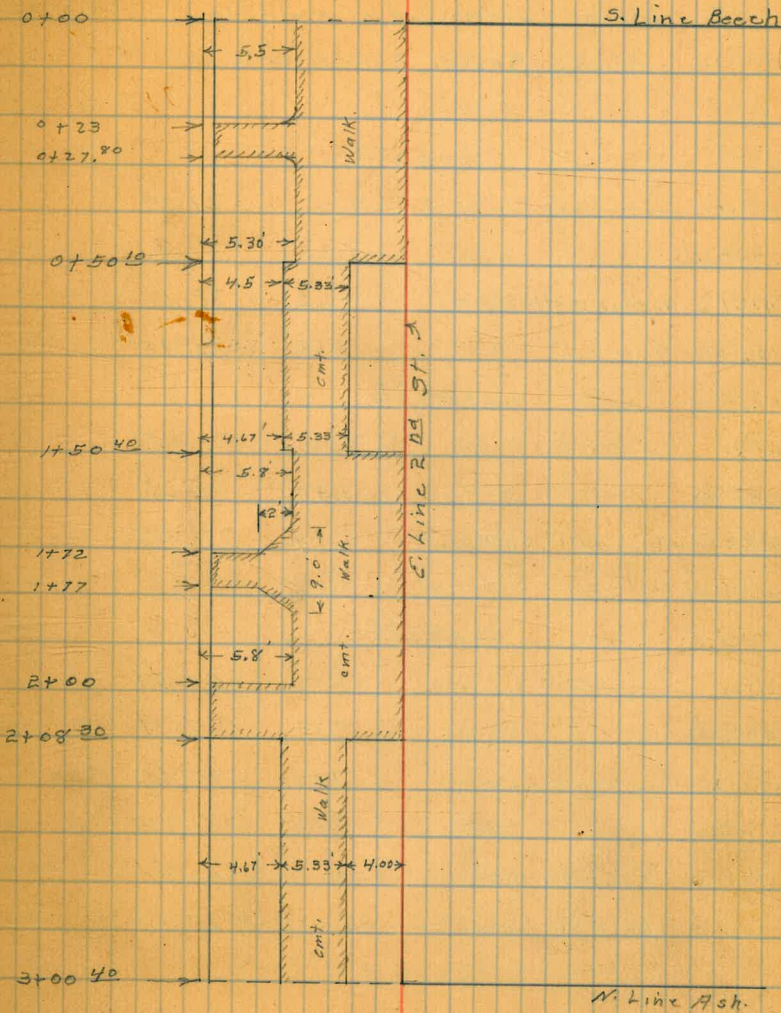 0+00
S. Line Beech
5.5
0+23
Walk.
0+27.80
5.30'
0+50 10
4.5 5.33'
E. Line 2nd St.
cmt.
4.67' 5.33'
1+50 40
5.8'
2'
1+72
9.0'
Walk.
1+77
cmt.
5.8'
2+00
2+08 30
Walk
4.67' 5.33' 4.00
cmt.
3+00 40
N. Line Ash.